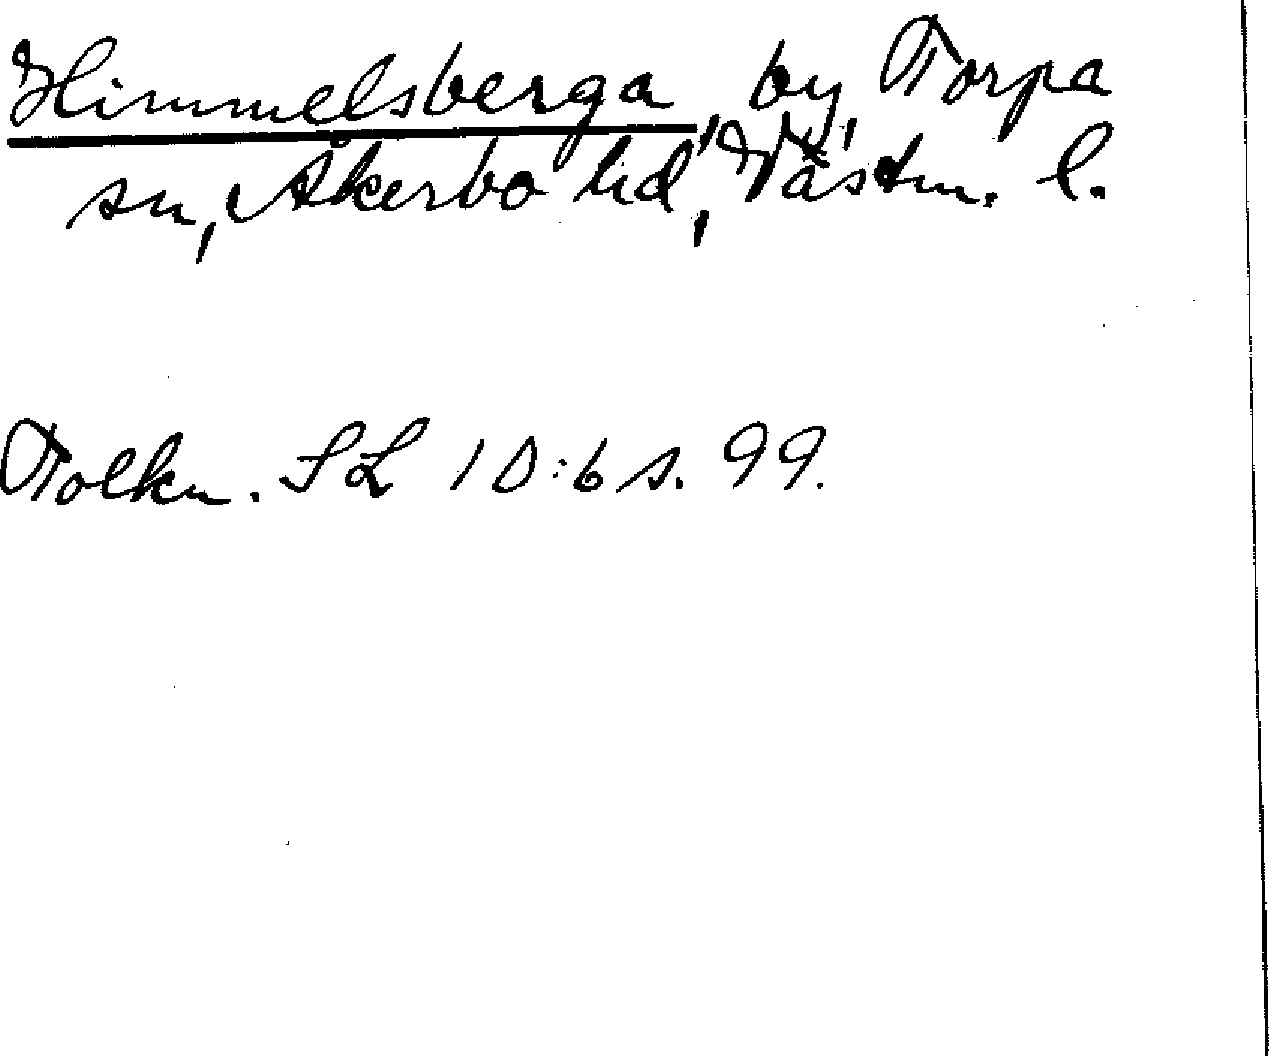 Himmelsberga, by, Torpa
sn, Åkerbo hd, Västm. l.
Tolkn. SL 10:6 s. 99.